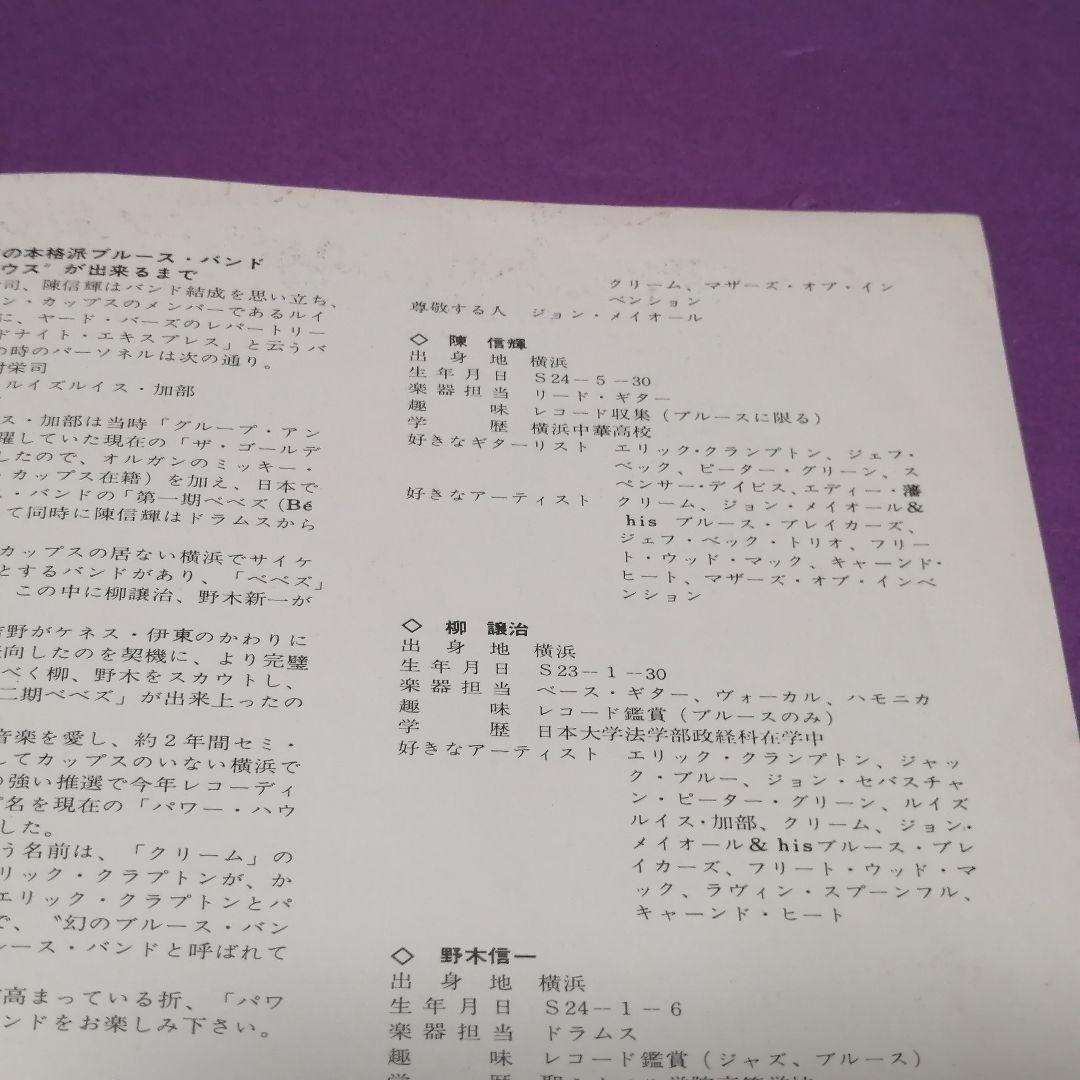 の本格派ブルース・バンド
ウス〟が出来るまで
司、陳信輝はバンド結成を思い立ち、
ン・カップスのメンバーであるルイ
に、ヤード・バーズのレパートリー
ドナイト・エキスプレス」と云うバ
の時のパーソネルは次の通り。
村栄司
ルイズルイス・加部
ス・加部は当時「グループ・アン
躍していた現在の「ザ・ゴールデ
したので、オルガンのミッキー・
・カップス在籍）を加え、日本で
ス・バンドの「第一期ベベズ (Bé
て同時に陳信輝はドラムスから
カップスの居ない横浜でサイケ
とするバンドがあり、「ベベズ」
この中に柳譲治、野木新一が
吉野がケネス・伊東のかわりに
向したのを契機に、より完璧
べく柳、野木をスカウトし、
二期ベベズ」が出来上ったの
音楽を愛し、約２年間セミ・
してカップスのいない横浜で
の強い推選で今年レコーディ
名を現在の「パワー・ハウ
した。
う名前は、「クリーム」の
リック・クラプトンが、か
エリック・クラプトンとパ
で、〝幻のブルース・バン
ース・バンドと呼ばれて
高まっている折、「パワ
ンドをお楽しみ下さい。
クリーム、マザーズ・オブ・イン
ベンション
尊敬する人　ジョン・メイオール
◇　陳　信輝
出身地　横浜
生年月日　S24－5－30
楽器担当　リード・ギター
趣味　レコード収集（ブルースに限る）
学歴　横浜中華高校
好きなギターリスト　エリック・クランプトン、ジェフ・
ベック、ピーター・グリーン、ス
ペンサー・デイビス、エディー・藩
好きなアーティスト　クリーム、ジョン・メイオール&
his ブルース・ブレイカーズ、
ジェフ・ベック・トリオ、フリー
ト・ウッド・マック、キャーンド・
ヒート、マザーズ・オブ・インベ
ンション
◇　柳　譲治
出身地　横浜
生年月日　S23－1－30
楽器担当　ベース・ギター、ヴォーカル、ハモニカ
趣味　レコード鑑賞（ブルースのみ）
学歴　日本大学法学部政経科在学中
好きなアーティスト　エリック・クランプトン、ジャッ
ク・ブルー、ジョン・セバスチャ
ン・ピーター・グリーン、ルイズ
ルイス・加部、クリーム、ジョン・
メイオール& hisブルース・ブレ
イカーズ、フリート・ウッド・マ
ック、ラヴィン・スプーンフル、
キャーンド・ヒート
◇　野木信一
出身地　横浜
生年月日　S24－1－6
楽器担当　ドラムス
趣味　レコード鑑賞（ジャズ、ブルース）
学歴